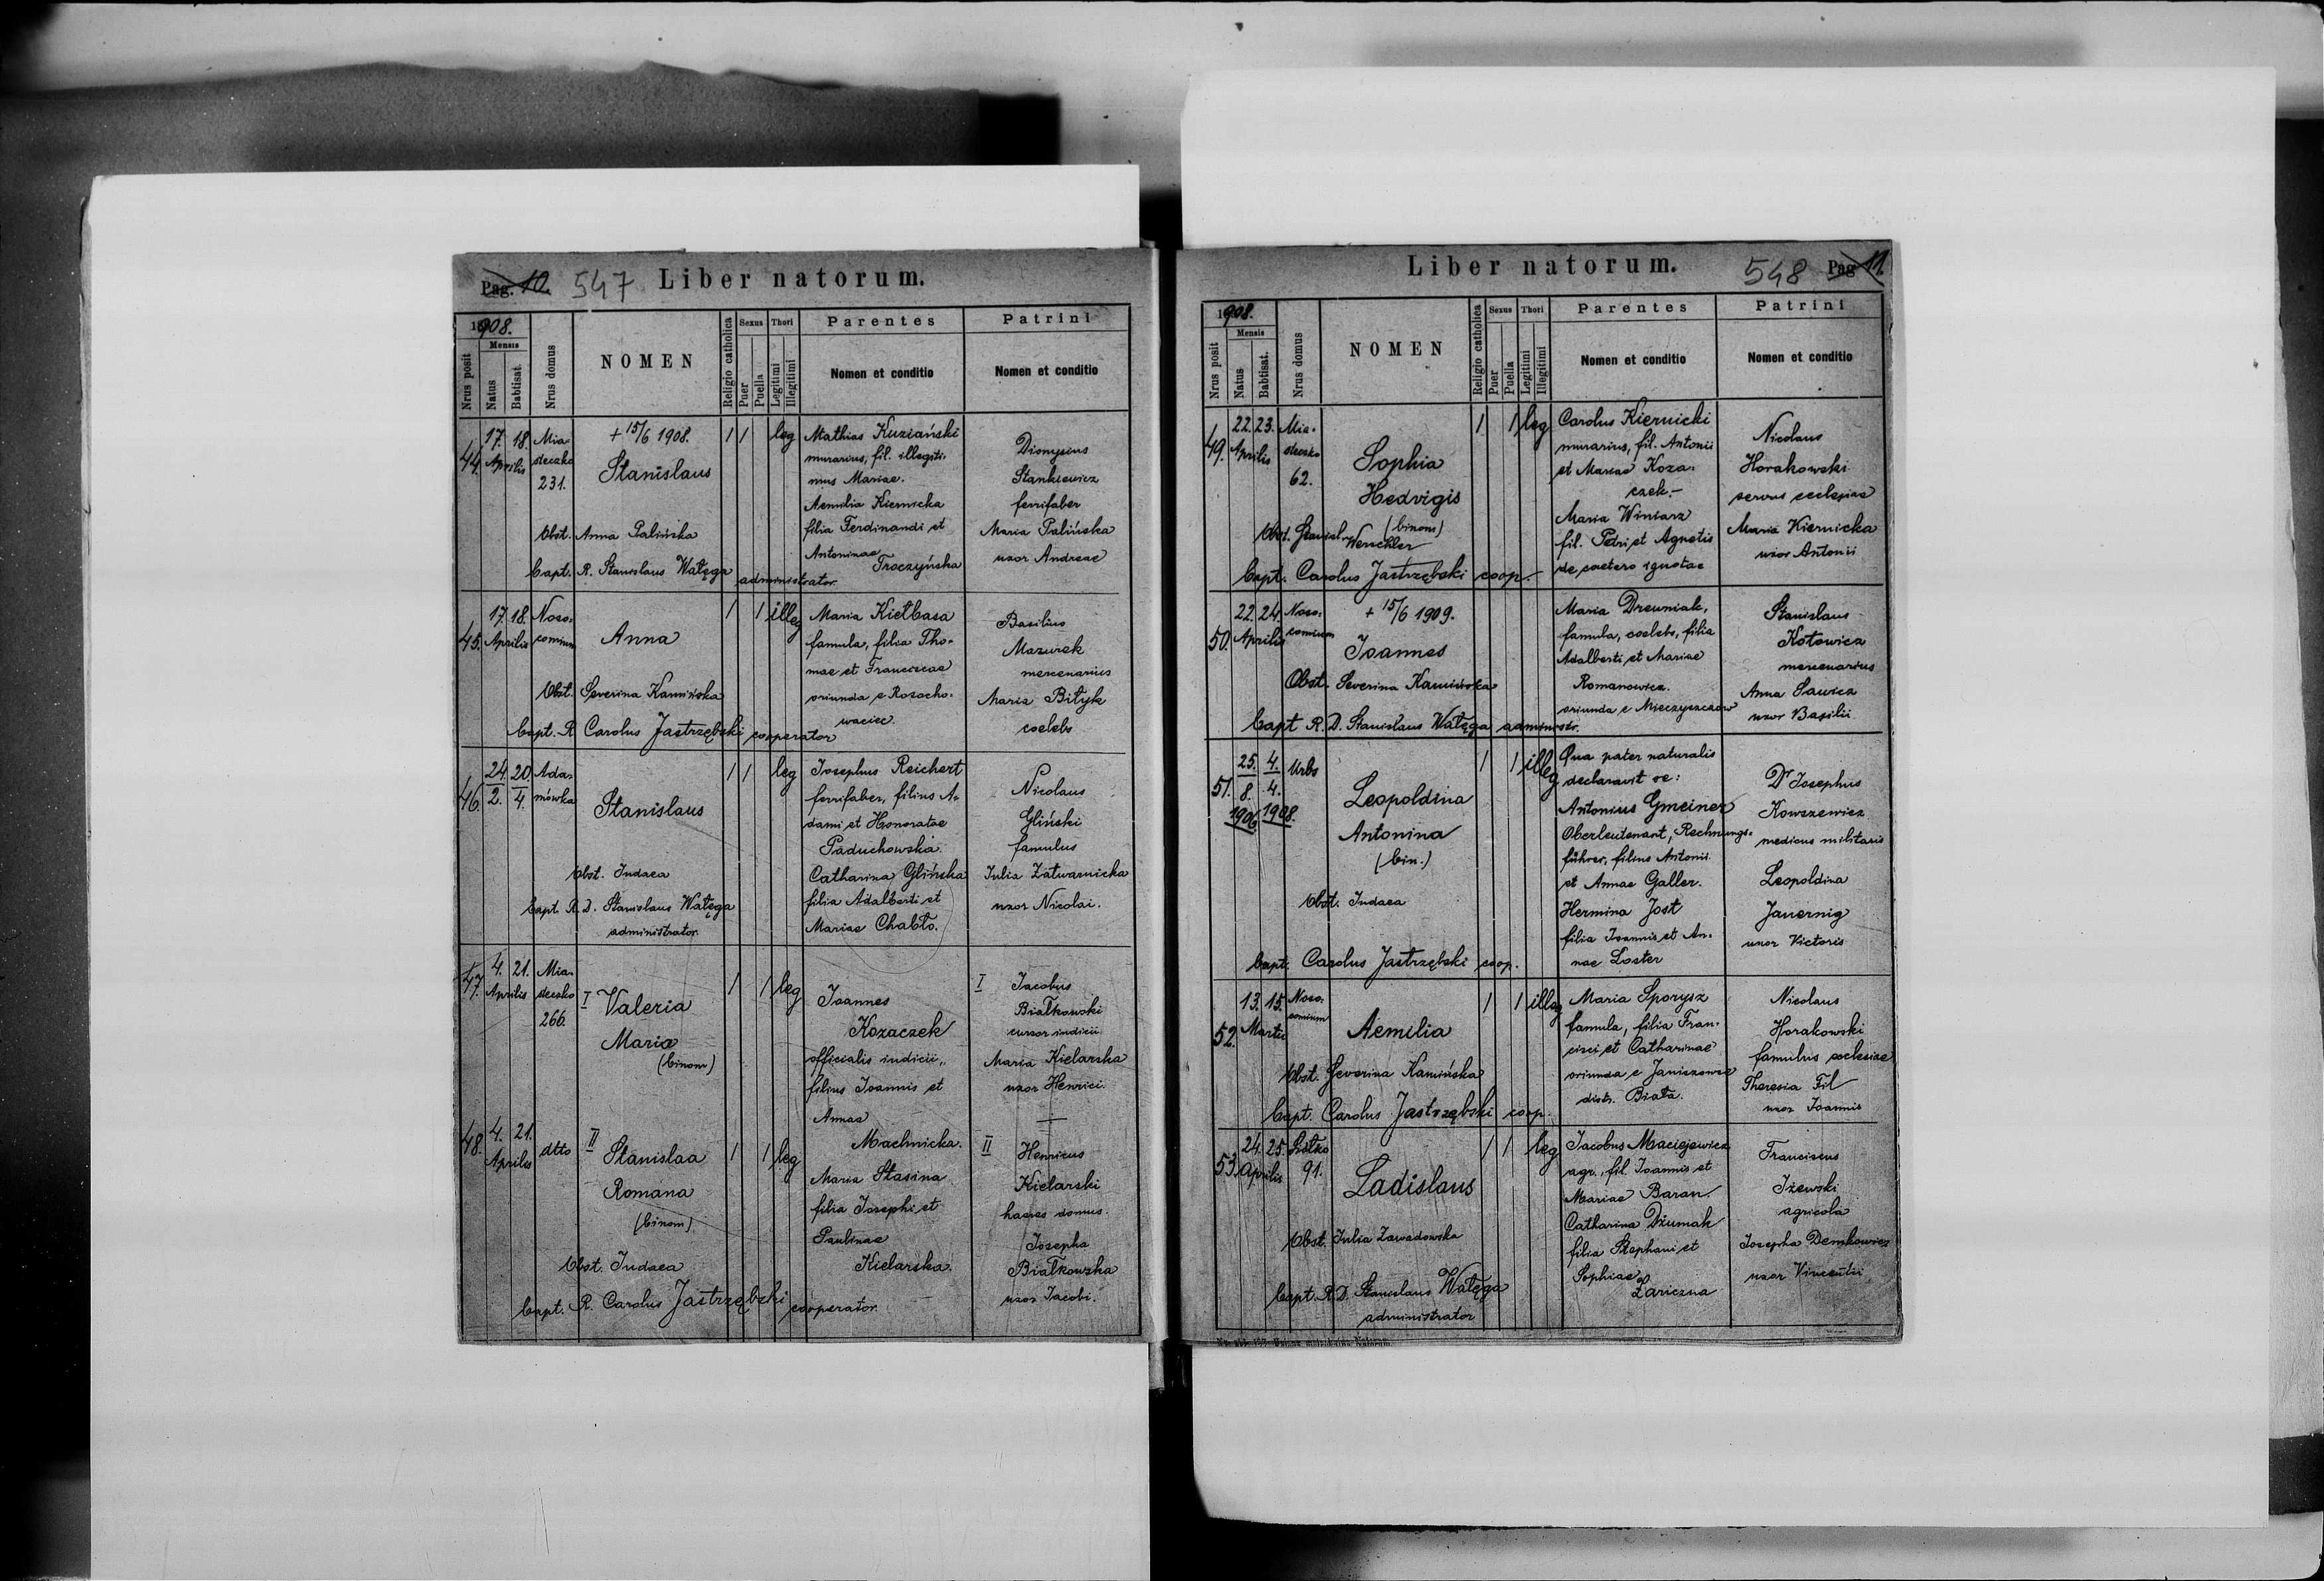 Pag. 10. 547 Liber natorum.
1908.
Nrus posit
Mensis
Natus
Babtisat.
Nrus domus
NOMEN
Religio catholica
Sexus
Puer
Puella
Thori
Legitimi
Illegitimi
Parentes
Nomen et conditio
Patrini
Nomen et conditio
44.
17. 18.
Aprilis
Mia-
steczko
231.
+ 15/6 1908.
Stanislaus
1 1 leg
Mathias Kuziański
murarius, fil. illegiti-
mus Mariae.
Aemilia Kiernicka
filia Ferdinandi et
Antoninae
Troczyńska
Dionysius
Stankiewicz
ferrifaber
Maria Palińska
uxor Andreae
Obst. Anna Palińska
bapt. R. Stanislaus Watęga administrator
45.
17. 18.
Aprilis
Noso-
comium
Anna
1 1 illeg
Maria Kiełbasa
famula, filia Tho-
mae et Franciscae
oriunda e Rosocho-
waciec.
Basilius
Mazurek
mercenarius
Maria Bityk
coelebs
Obst. Severina Kamińska
bapt. R. Carolus Jastrzębski cooperator
46.
24. 20.
2. 4.
Ada-
mówka
Stanislaus
1 1 leg
Josephus Reichert
ferrifaber, filius A-
dami et Honoratae
Paduchowska.
Catharina Glińska
filia Adalberti et
Mariae Chabło.
Nicolaus
Gliński
famulus
Julia Zatwarnicka
uxor Nicolai.
Obst. Judaea
bapt. R. D. Stanislaus Watęga
administrator.
47.
4. 21.
Aprilis
Mia-
steczko
266.
I Valeria
Maria
(binom)
1 1 leg
Joannes
Kozaczek
officialis iudicii,
filius Joannis et
Annae
Machnicka.
Maria Stasina
filia Josephi et
Paulinae
Kielarska.
I Jacobus
Białkowski
cursor iudicii
Maria Kielarska
uxor Henrici.
48.
4. 21.
Aprilis
dtto
II Stanislaa
Romana
(binom)
1 1 leg
II Henricus
Kielarski
haeres domus.
Josepha
Białkowska
uxor Jacobi.
Obst. Judaea
bapt. R. Carolus Jastrzębski cooperator.
Liber natorum. 548 Pag 11.
1908.
Nrus posit
Mensis
Natus
Babtisat.
Nrus domus
NOMEN
Religio catholica
Sexus
Puer
Puella
Thori
Legitimi
Illegitimi
Parentes
Nomen et conditio
Patrini
Nomen et conditio
49.
22. 23.
Aprilis
Mia-
steczko
62.
Sophia
Hedvigis
(binom)
1 1 leg
Carolus Kiernicki
murarius, fil. Antonii
et Mariae Koza-
czek.-
Maria Winiarz
fil. Petri et Agnetis
de caetero ignotae
Nicolaus
Horakowski
servus ecclesiae
Maria Kiernicka
uxor Antonii
Obst. Stanisl. Wenckler
bapt. Carolus Jastrzębski coop.
50.
22. 24.
Aprilis
Noso-
comium
+ 15/6 1909.
Joannes
Maria Drewniak,
famula, coelebs, filia
Adalberti et Mariae
Romanowicz.
oriunda e Mieczyszczów
Stanislaus
Kotowicz
mercenarius
Anna Sawicz
uxor Basilii
Obst. Severina Kamińska
bapt R. D. Stanislaus Watęga administr.
51.
25. 4.
8. 4.
1906. 1908.
Urbs
Leopoldina
Antonina
(bin.)
1 1 illeg
Qua pater naturalis
declaravit se:
Antonius Gmeiner
Oberleutenant, Rechnungs-
führer, filius Antonii
et Annae Galler.
Hermina Jost
filia Joannis et An-
nae Loster
Dr Josephus
Kowszewicz
medicus militaris
Leopoldina
Jauernig
uxor Victoris
Obst. Judaea
bapt. Carolus Jastrzębski coop.
52.
13. 15.
Martii
Noso-
comium
Aemilia
1 1 illeg
Maria Sporysz
famula, filia Fran-
cisci et Catharinae
oriunda e Janiszowce
distr. Biała.
Nicolaus
Horakowski
famulus ecclesiae
Theresia Fil
uxor Joannis
Obst. Severina Kamińska
bapt. Carolus Jastrzębski coop.
53.
24. 25.
Aprilis
91.
Ladislaus
1 1 leg
Jacobus Maciejewicz
agr., fil. Joannis et
Mariae Baran.
Catharina Dżumak
filia Stephani et
Sophiae
Zariczna
Franciscus
Iżewski
agricola
Josepha Demkowicz
uxor Vincentii
Obst. Julia Zawadowska
bapt. R. D. Stanislaus Watęga
administrator